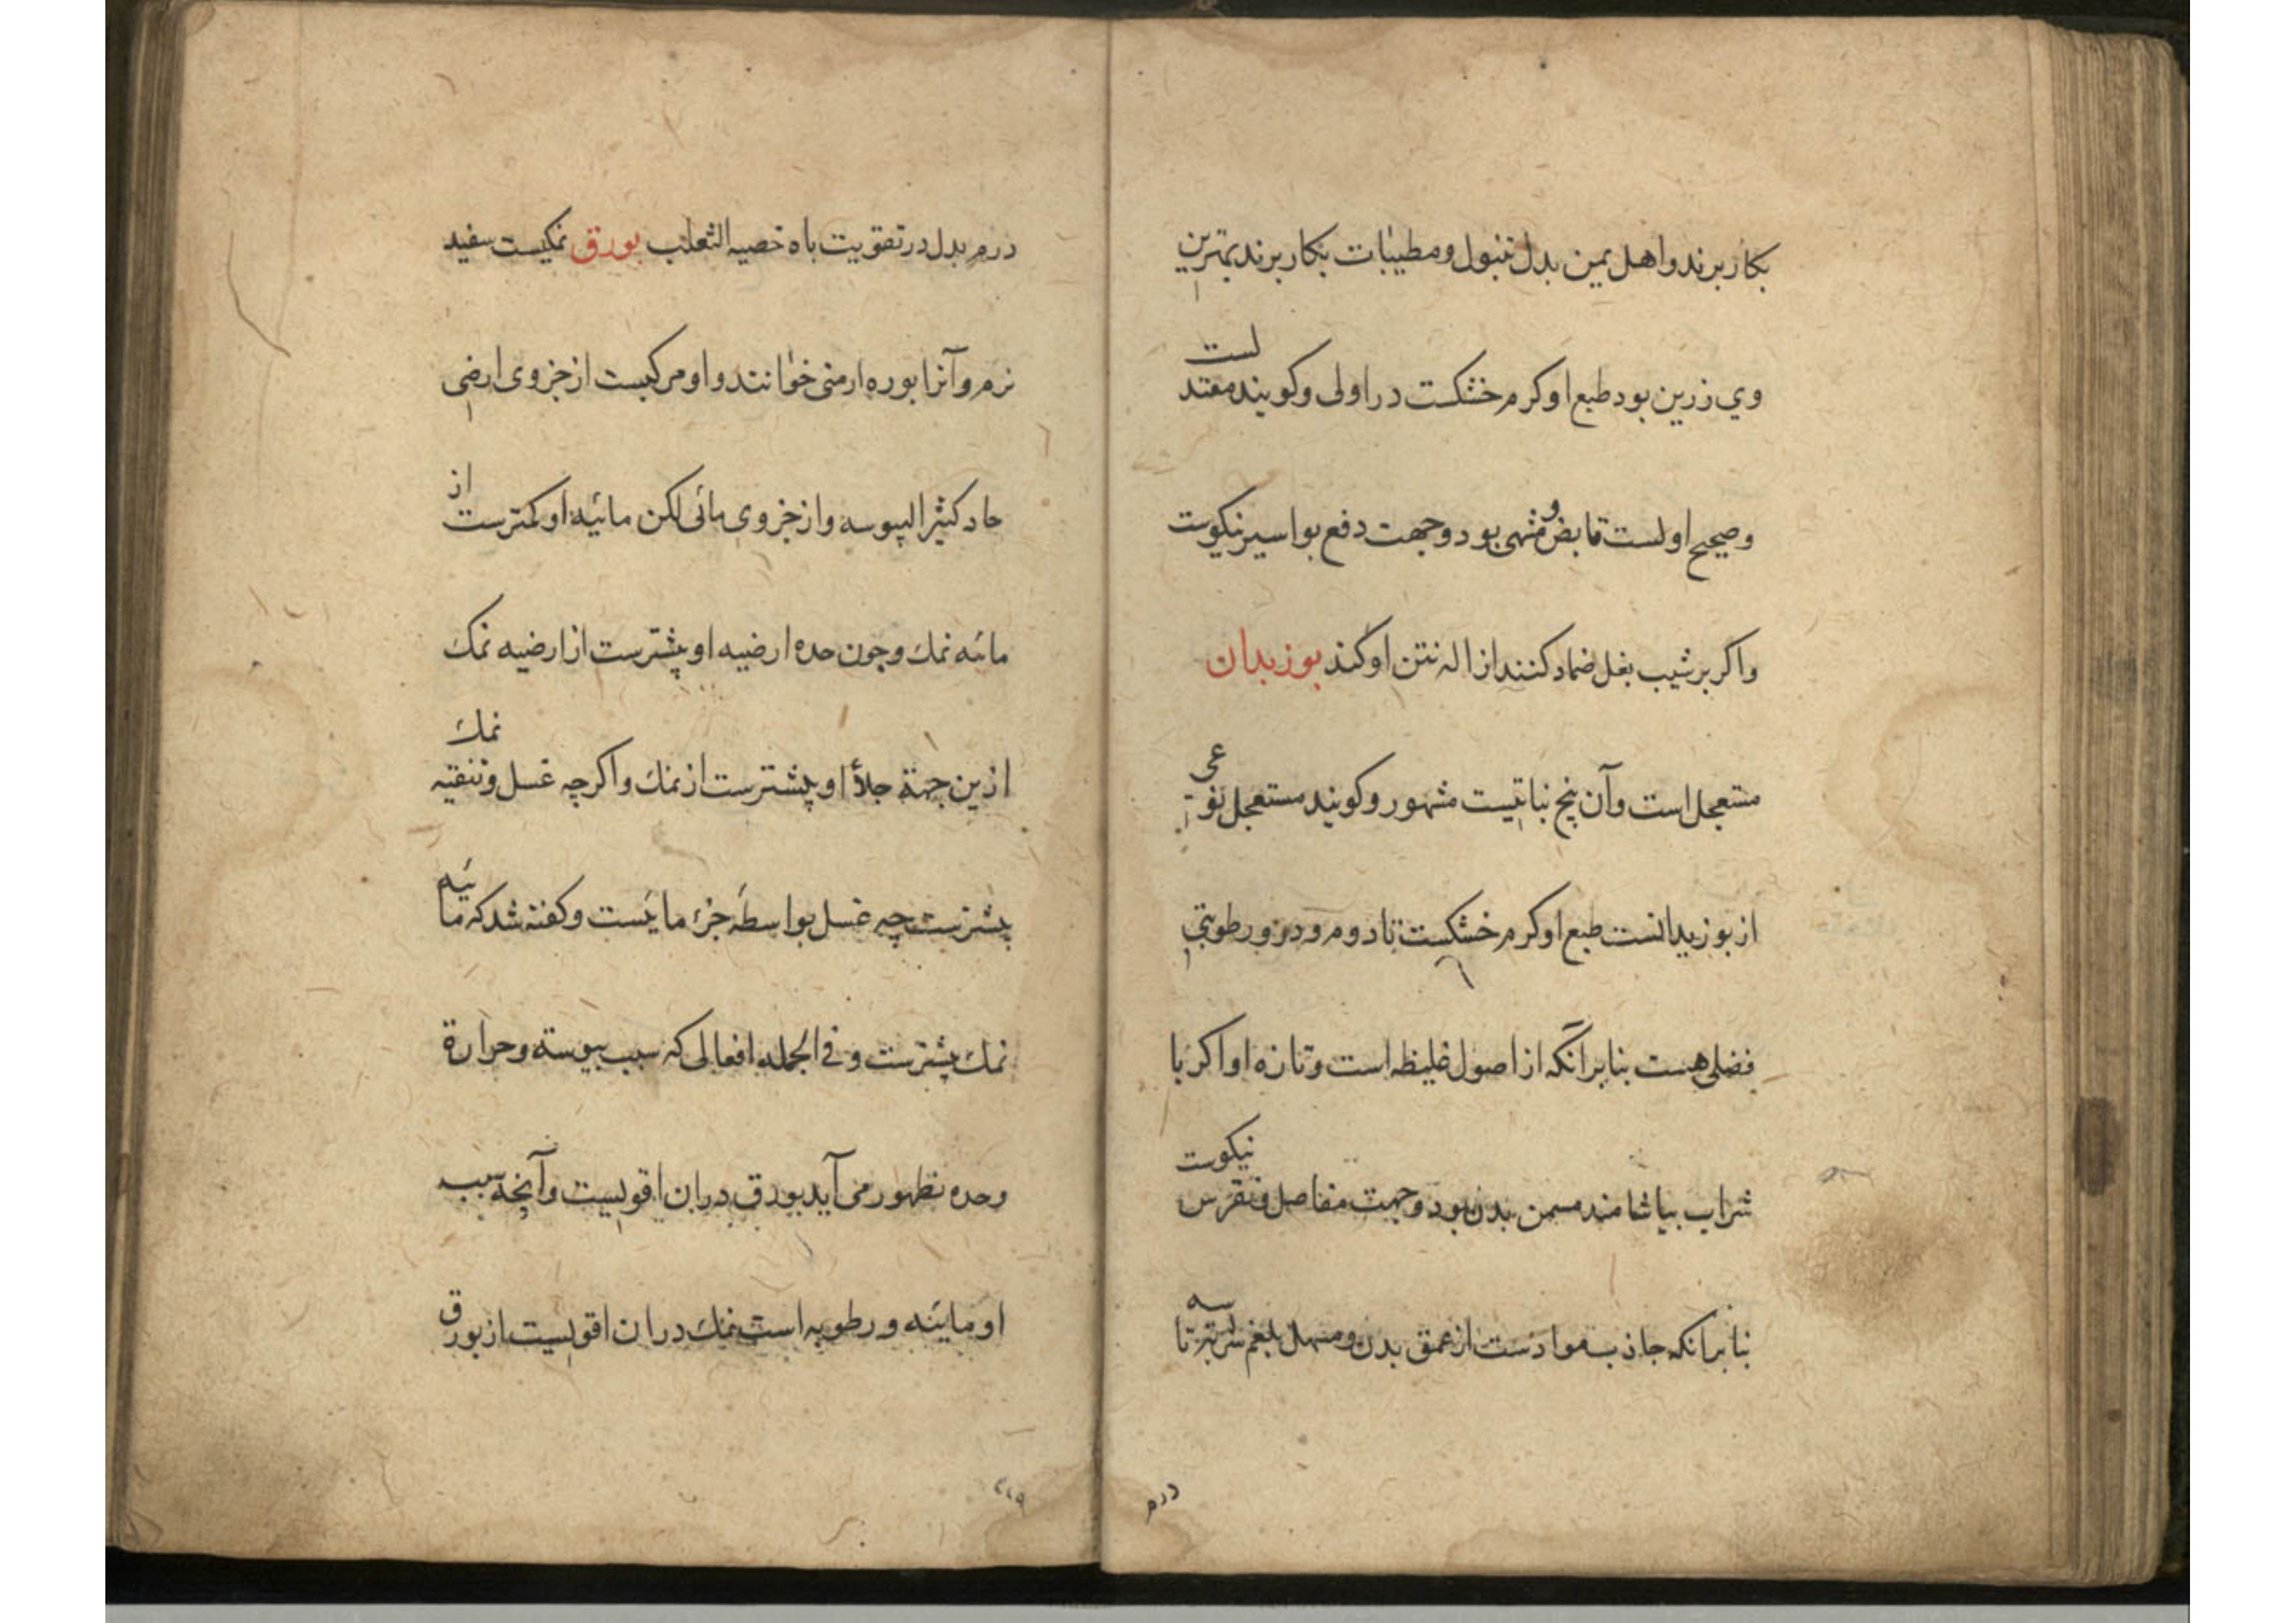 بکار برند و اهل یمن بدل تنبول و مطیبات بکار برند بهترین
وی زرین بود طبع او کرم خشکست در اولی و کویند معتدلست
و صحیح اولست قابض و مشهی بود و جهت دفع بواسیر نیکوست
و اکر بر شیب بغل ضماد کنند ازاله نتن او کند بوزیدان
مستعجل است و آن بیخ نباتیست مشهور و کویند مستعجل نوعی
از بوزیدانست طبع او کرم خشکست تا دوم و درو رطوبتی
فضلی هست بنابر آنکه از اصول غلیظه است و تازه او اکر با
شراب بیاشامند مسمن بدن بود و جهت مفاصل و نقرس نیکوست
بنابر آنکه جاذب موادست از عمق بدن و مسهل بلغم شربته تا سه
درم
درم بدل در تقویت باه خصیه الثعلب بورق نمکیست سفید
نرم و آنرا بوره ارمنی خوانند و او مرکبست از جزوی ارضی
حاد کثیر الیبوسه و از جزوی مائی لکن مائیه او کمترست از
مائیه نمک و چون حده ارضیه او بیشترست از ارضیه نمک
ازین جهة جلأ او بیشترست از نمک و اکرچه غسل و تنقیه نمک
بیشترست چه غسل بواسطه جزء مایست و کفته شد که مائیه
نمک بیشترست و فی الجمله افعالی که سبب یبوسة و حرارة
و حده بظهور می آید بورق در ان اقویست و آنچه سبب
او مائیه و رطوبه است نمک در ان اقویست از بورق